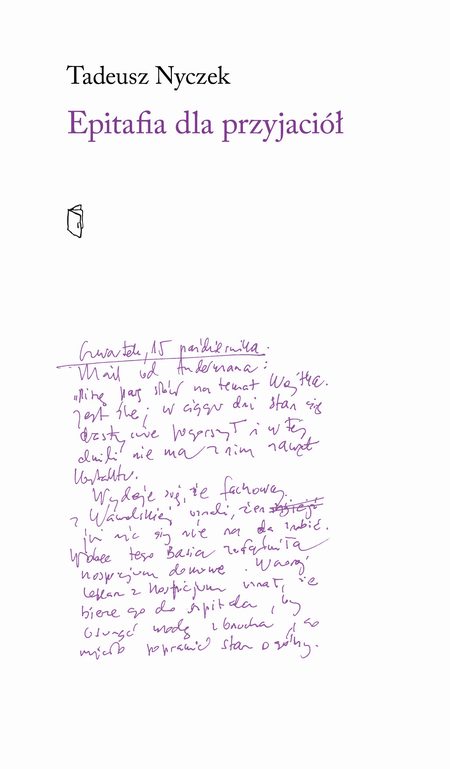 Tadeusz Nyczek
Epitafia dla przyjaciół
Czwartek, 15 października.
Mail od Andermana:
"Piszę parę słów na temat Wojtka.
Jest źle; w ciągu dni stan się
drastycznie pogorszył i w tej
chwili nie ma z nim nawet
kontaktu.
Wydaje się, że fachowcy
z Wawelskiej uznali, że
już nic się nie da zrobić.
Wobec tego Basia załatwiła
hospicjum domowe. Wczoraj
lekarz z hospicjum uznał, że
bierze go do szpitala, by
usunąć wodę z brzucha, co
może poprawić stan ogólny.